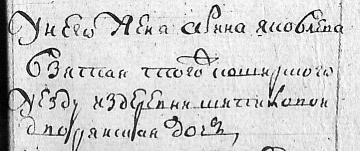 У него жена Анна Яковлева
взятая того Каширского
уезду из деревни Шишковои
дворянская дочь